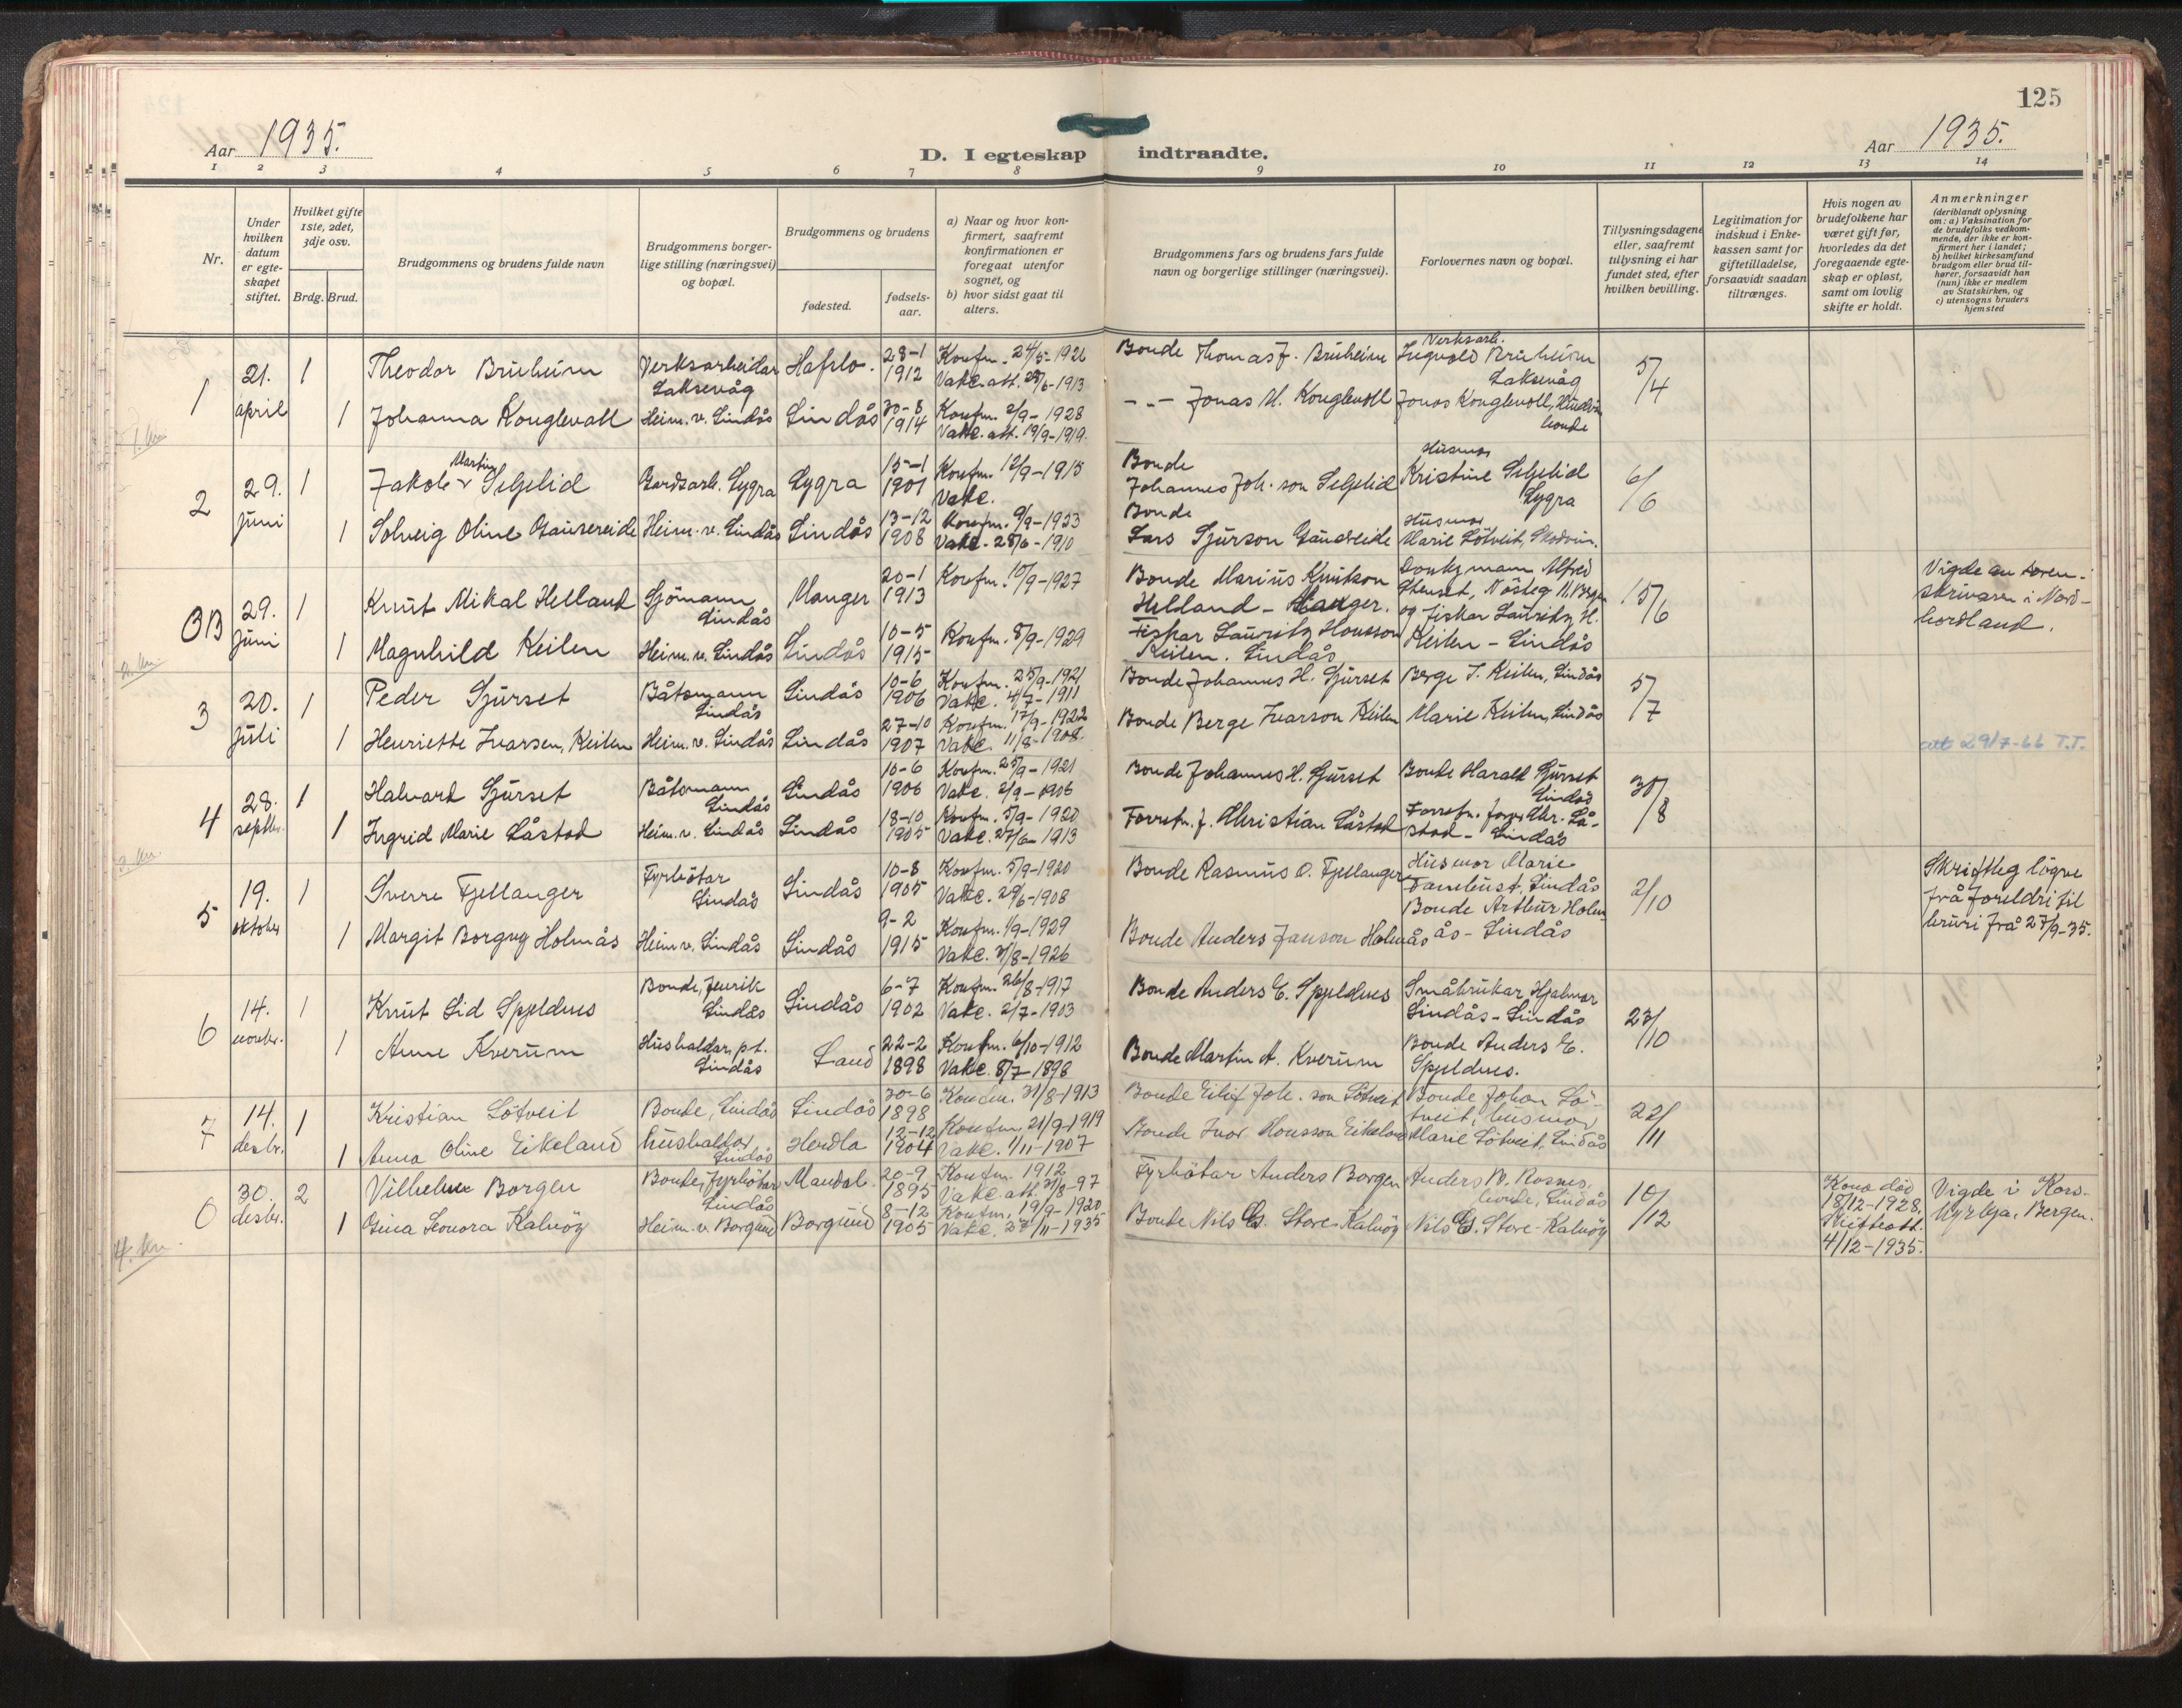 125
Aar 1935.
D. I egteskap indtraadte.
Aar 1935.
1 2 3 4 5 6 7 8 9 10 11 12 13 14
Nr.
Under hvilken datum er egteskapet stiftet.
Hvilket gifte 1ste, 2det, 3dje osv.
Brdg. Brud.
Brudgommens og brudens fulde navn
Brudgommens borgerlige stilling (næringsvei) og bopæl.
Brudgommens og brudens
fødested.
fødselsaar.
a) Naar og hvor konfirmert, saafremt konfirmationen er foregaat utenfor sognet, og
b) hvor sidst gaat til alters.
Brudgommens fars og brudens fars fulde navn og borgerlige stillinger (næringsvei).
Forlovernes navn og bopæl.
Tillysningsdagene eller, saafremt tillysning ei har fundet sted, efter hvilken bevilling.
Legitimation for indskud i Enkekassen samt for giftetilladelse, forsaavidt saadan tiltrænges.
Hvis nogen av brudefolkene har været gift før, hvorledes da det foregaaende egteskap er opløst, samt om lovlig skifte er holdt.
Anmerkninger
(deriblandt oplysning om: a) Vaksination for de brudefolks vedkommende, der ikke er konfirmert her i landet; b) hvilket kirkesamfund brudgom eller brud tilhører, forsaavidt han (hun) ikke er medlem av Statskirken, og c) utensogns bruders hjemsted
1 21. april 1 Theodor Bruheim Verksarbeidar Laksevåg Hafslo. 28-1 1912 Konfm. 24/5-1926 Vakc. att. 1913 Bonde Thomas J. Bruheim Verksarb. Ingvald Bruheim Laksevåg 5/4
1 Johanna Konglevoll Heim. v. Lindås Lindås 30-8 1914 Konfm. 2/9-1928 Vakc. att. 19/9-1919. -"- Jonas M. Konglevoll Jonas Konglevoll, bonde
2 29. juni 1 Jakob Martin Selfelid Gardsarb. Lygra Lygra 15-1 1901 Konfm. 12/9-1915 Vakc. Bonde Johannes Joh. son Selfelid Husmor Kristine Selfelid Lygra 6/6
1 Solveig Oline Gausereide Heim. v. Lindås Lindås 13-12 1908 Konfm. 9/9-1923 Vakc. 28/6-1910 Bonde Lars Sjurson Gausereide Husmor Marie Lötveit, Skodvin.
3B 29. juni 1 Knut Mikal Helland Sjömann Lindås Manger 20-1 1913 Konfm. 10/9-1927 Bonde Marius Knutson Helland - Manger. Donkymann Alfred Nösteg 11. Bergen og fiskar Lauritz H. Keilen - Lindås 15/6 Vigde av sorenskrivaren i Nordhordland.
1 Magnhild Keilen Heim. v. Lindås Lindås 10-5 1915 Konfm. 8/9-1929 Fiskar Lauritz Hansson Keilen. Lindås
3 20. juli 1 Peder Sjurset Båtsmann Lindås Lindås 10-6 1906 Konfm. 25/9-1921 Vakc. 4/7-1911 Bonde Johannes H. Sjurset Berge I. Keilen, Lindås 5/7
1 Henriette Ivarsen, Keilen Heim. v. Lindås Lindås 27-10 1907 Konfm. 17/9-1922 Vakc. 11/8-1908. Bonde Berge Ivarson Keilen Marie Keilen, Lindås att 29/7-66 T.T.
4 28. septbr. 1 Halvard Sjurset Båtsmann Lindås Lindås 10-6 1906 Konfm. 25/9-1921 Vakc. 2/9-1906 Bonde Johannes H. Sjurset Bonde Harald Sjurset Lindås 30/8
1 Ingrid Marie Låstad Heim. v. Lindås Lindås 18-10 1905 Konfm. 5/9-1920 Vakc. 27/6-1913 Forretn. f. Christian Låstad Forretn. Chr. Låstad - Lindås
5 19. oktober 1 Sverre Fjellanger Fyrbötar Lindås Lindås 10-8 1905 Konfm. 5/9-1920 Vakc. 29/6-1908 Bonde Rasmus O. Fjellanger Husmor Marie Lindås 2/10 Skriftleg lögne frå foreldri til bruri frå 27/9-35.
1 Margit Borgny Holmås Heim v. Lindås Lindås 9-2 1915 Konfm. 1/9-1929 Vakc. 31/8-1926 Bonde Anders Janson Holmås Bonde Arthur Holmås - Lindås
6 14. novbr. 1 Knut Lid Spjeldnes Bonde, Lindås Lindås 6-7 1902 Konfm. 26/8-1917 Vakc. 2/7-1903 Bonde Anders E. Spjeldnes Småbrukar Hjalmar Lindås - Lindås 23/10
1 Anne Kverum Hushaldar, p.t. Lindås Sand 22-2 1898 Konfm. 6/10-1912 Vakc. 8/7-1898 Bonde Martin A. Kverum Bonde Anders E. Spjeldnes.
7 14. desbr. 1 Kristian Lötveit Bonde, Lindås Lindås 30-6 1898 Konfm. 31/8-1913 Bonde Eilif Joh. son Lötveit Bonde Johan Lötveit, husmor 22/11
1 Anna Oline Eikeland hushaldar, Lindås Herdla 12-12 1904 Konfm. 21/9-1919 Vakc. 1/11-1907 Bonde Ivar Monsson Eikeland Marie Lötveit, Lindås
30. desbr. 2 Vilhelm Borgen Bonde, fyrbötar Lindås Mandal. 20-9 1895 Konfm. 1912 Vakc. att. 31/8-97 Fyrbötar Anders Borgen Anders N. Rosnes, bonde, Lindås 10/12 Kona död 18/12-1928. Skifteatt. 4/12-1935. Vigde i Korskyrkja, Bergen.
1 Gina Leonora Kalvöy Heim. v. Borgund Borgund 8-12 1905 Konfm. 19/9-1920 Vakc. 27/11-1935 Bonde Nils G. Store-Kalvöy Nils G. Store-Kalvöy